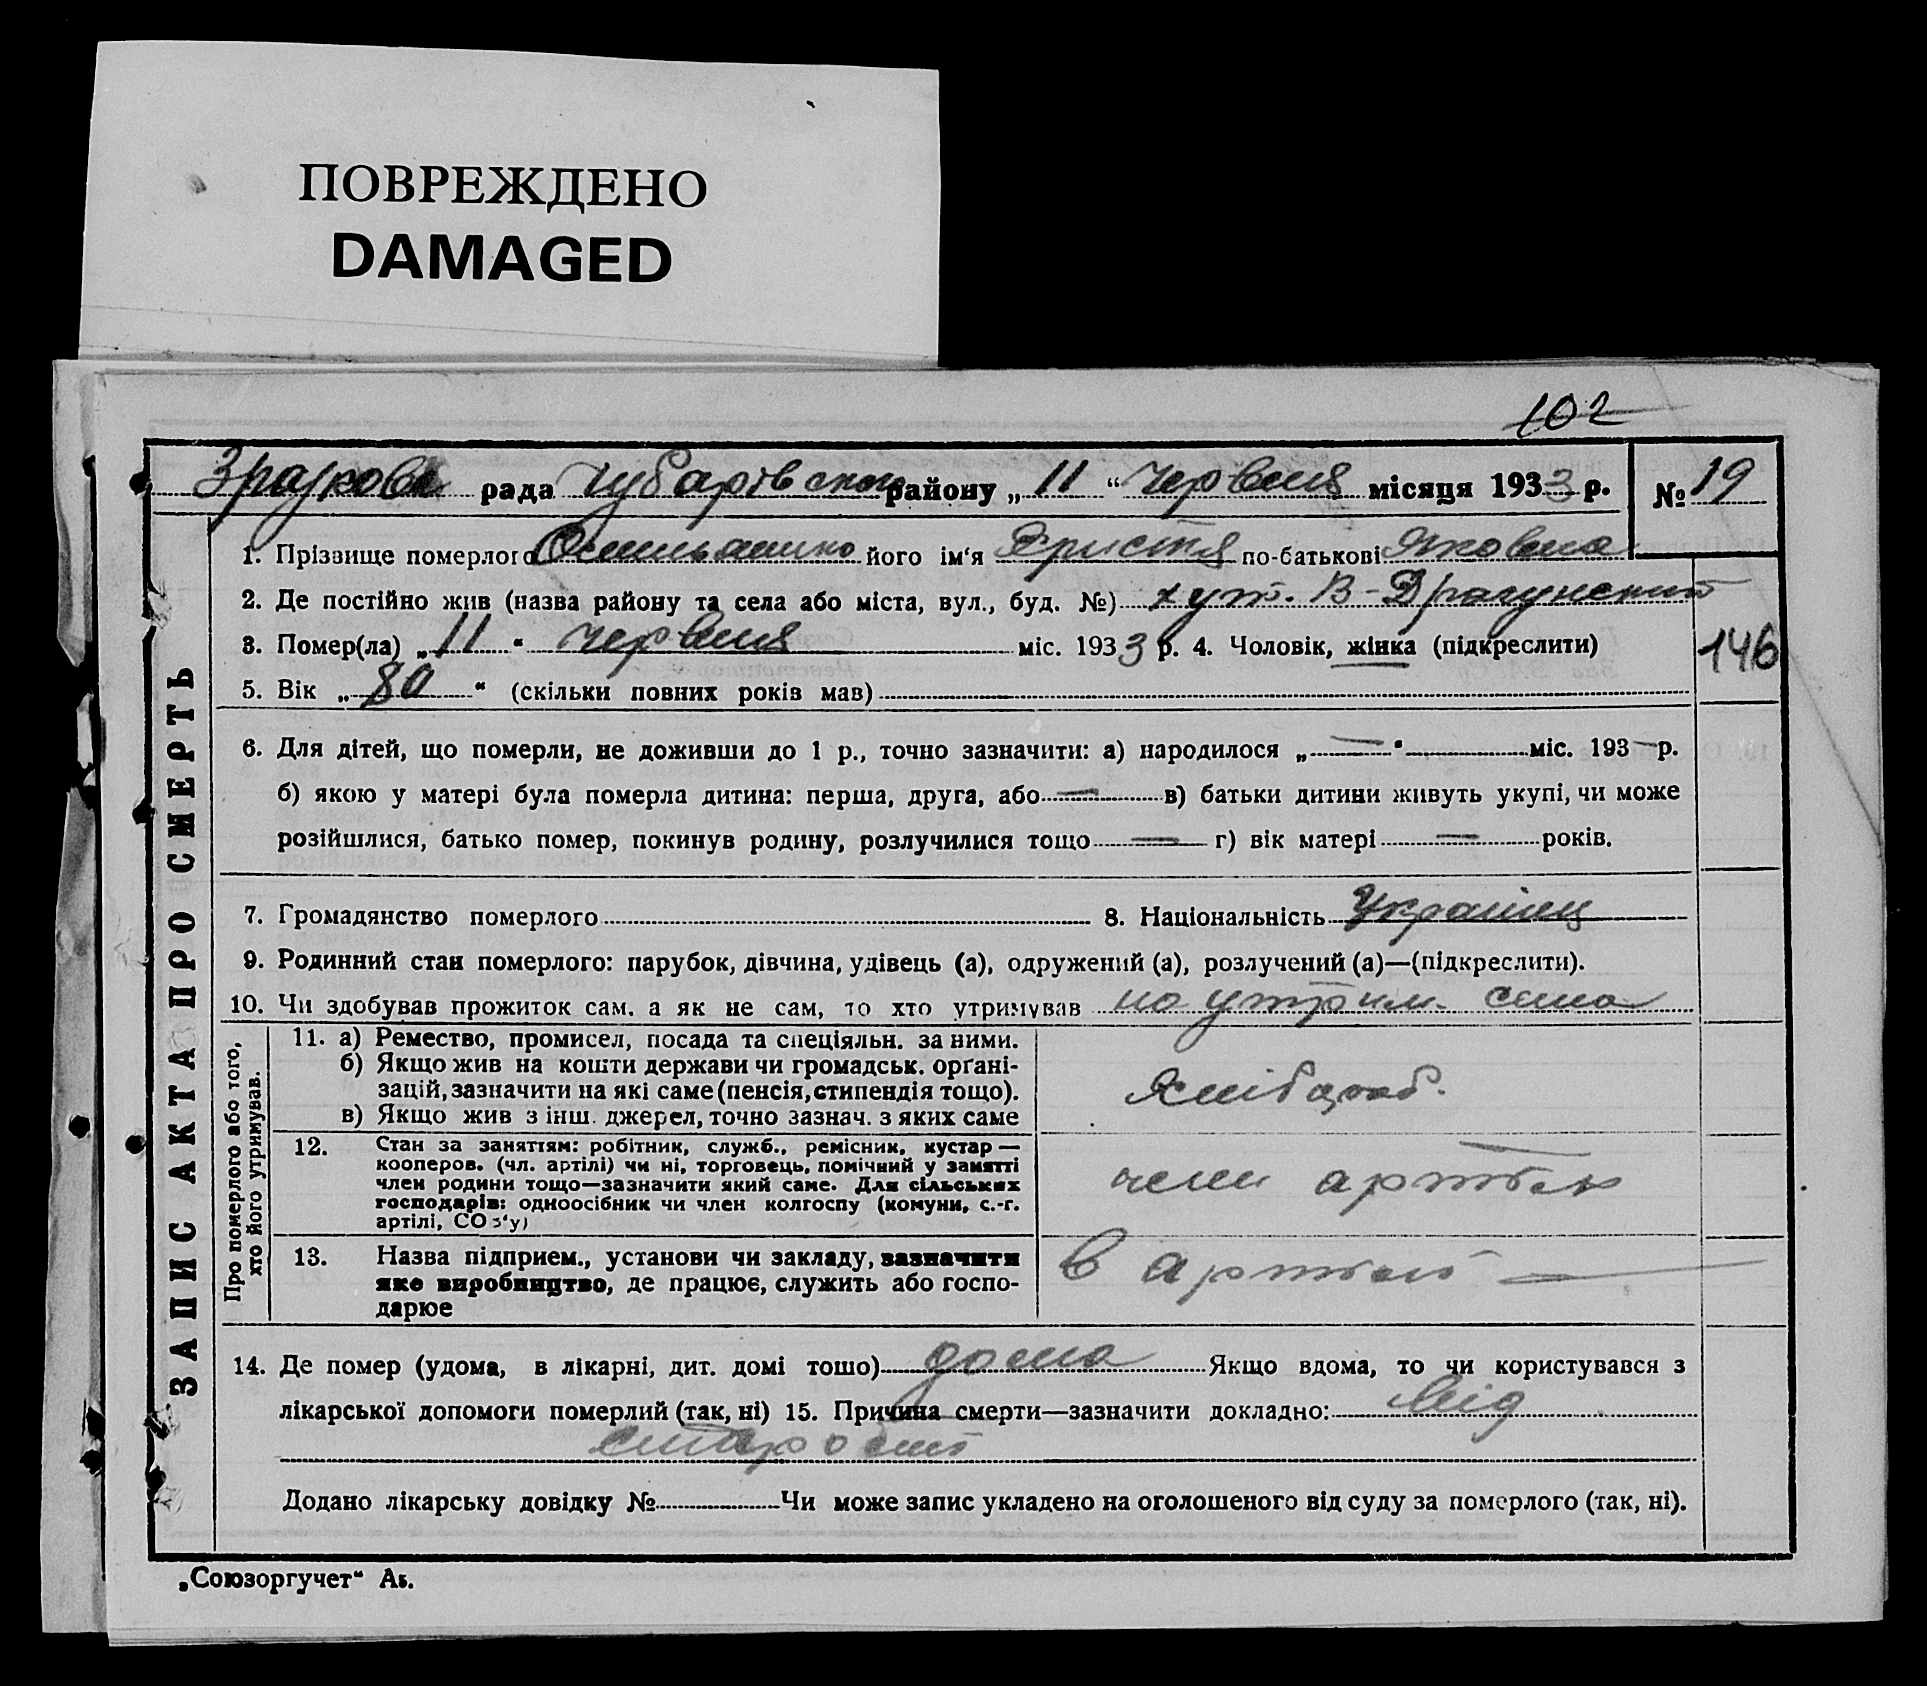 ПОВРЕЖДЕНО
DAMAGED
102
рада Чубарівського району „ 11 “ Червня місяця 1933 р. № 19
1. Прізвище померлого його ім‘я Христя по-батькові Яковна
2. Де постійно жив (назва району та села або міста, вул., буд. №) хут. В-Драгунский
3. Помер(ла) „ 11 “ червня міс. 1933 р. 4. Чоловік, жінка (підкреслити)
146
5. Вік „ 80 “ (скільки повних років мав)
6. Для дітей, що померли, не доживши до 1 р., точно зазначити: а) народилося „ — “ міс. 193 — р.
б) якою у матері була померла дитина: перша, друга, або — в) батьки дитини живуть укупі, чи може
розійшлися, батько помер, покинув родину, розлучилися тощо — г) вік матері — років.
7. Громадянство померлого 8. Національність Українец
9. Родинний стан померлого: парубок, дівчина, удівець (а), одружений (а), розлучений (а)—(підкреслити).
10. Чи здобував прожиток сам, а як не сам, то хто утримував на утрим. сина
ЗАПИС АКТА ПРО СМЕРТЬ
Про померлого або того,
хто його утримував.
11. а) Ремество, промисел, посада та спеціяльн. за ними.
б) Якщо жив на кошти держави чи громадськ. орґані-
зацій, зазначити на які саме (пенсія, стипендія тощо).
в) Якщо жив з інш. джерел, точно зазнач. з яких саме
Хлібороб.
12. Стан за заняттям: робітник, служб., ремісник, кустар —
кооперов. (чл. артілі) чи ні, торговець, помічний у занятті
член родини тощо—зазначити який саме. Для сільських
господарів: одноосібник чи член колгоспу (комуни, с.-г.
артілі, СОЗ‘у)
член
13. Назва підприєм., установи чи закладу, зазначити
яке виробництво, де працює, служить або госпо-
дарює
в артелі —
14. Де помер (удома, в лікарні, дит. домі тошо) дома Якщо вдома, то чи користувався з
лікарської допомоги померлий (так, ні) 15. Причина смерти—зазначити докладно: від
старости
Додано лікарську довідку № Чи може запис укладено на оголошеного від суду за померлого (так, ні).
„Союзоргучет“ Аб.